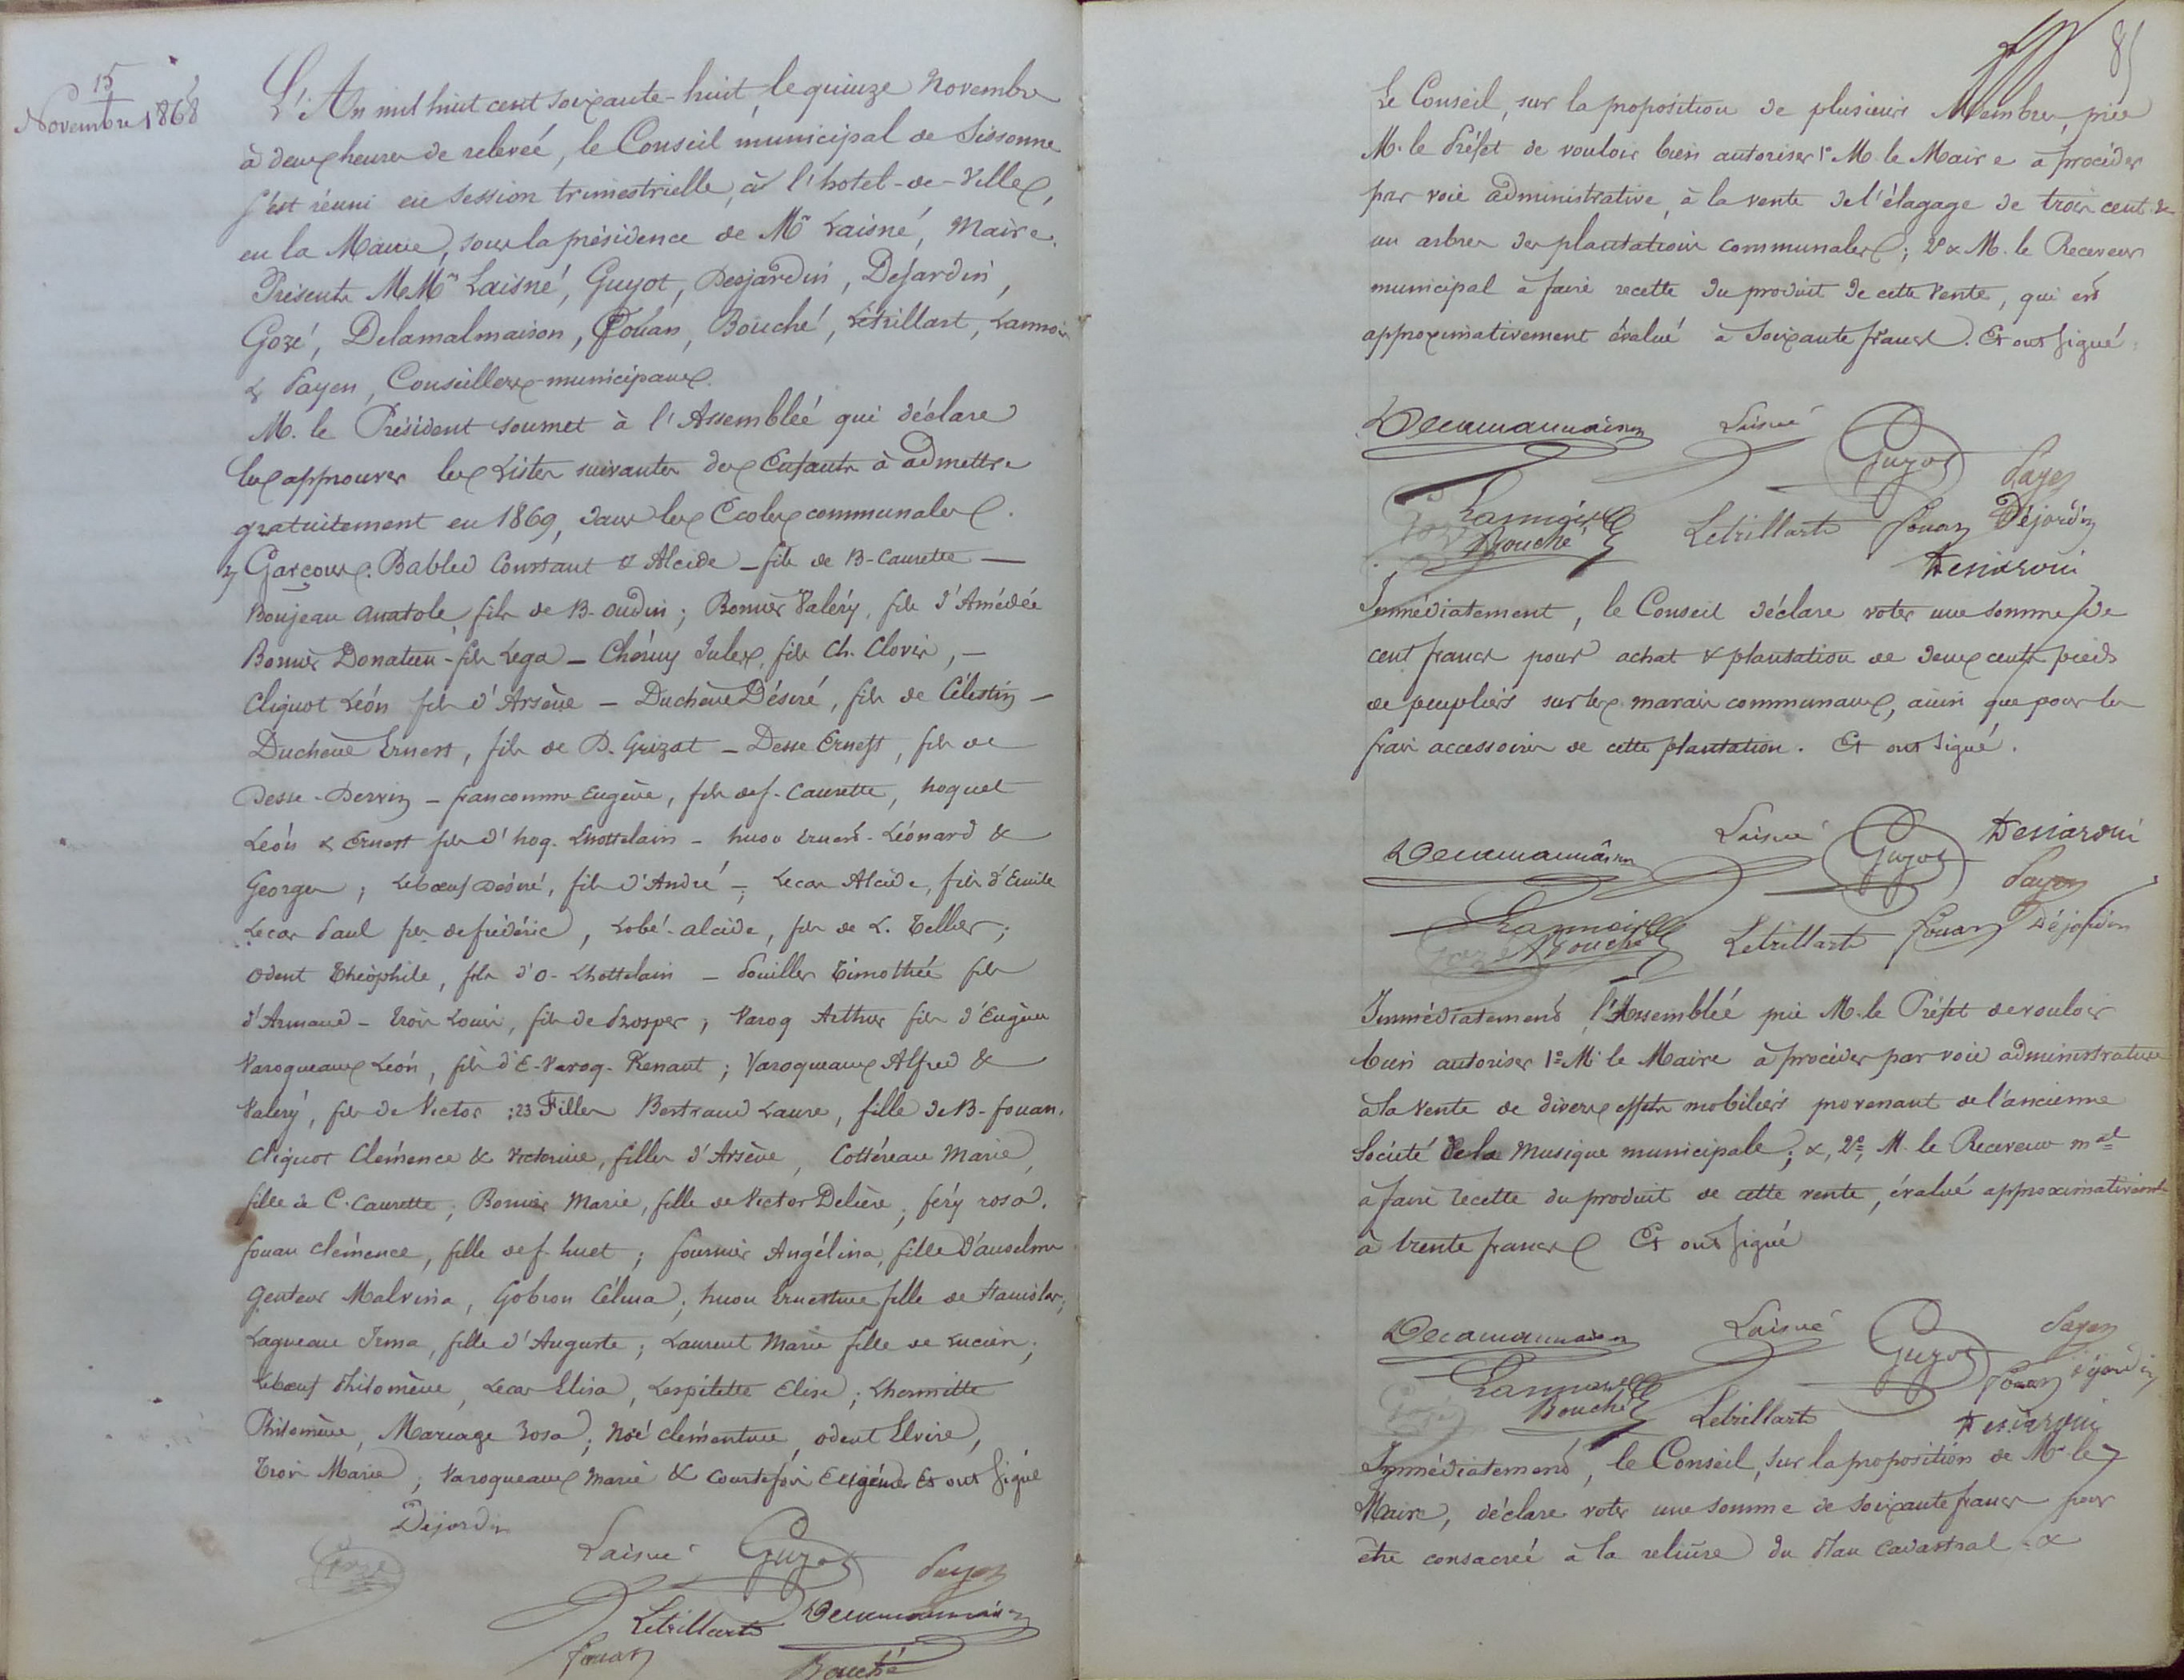 15
Novembre 1868
L'An mil huit cent soixante-huit, le quinze Novembre
à deux heures de relevée, le Conseil municipal de Sissonne
s'est réuni en session trimestrielle, à l'hotel-de-Ville,
en la Mairie, sous la présidence de Mr Laisné, Maire.
Présents M.Mrs Laisné, Guyot, Desjardin, Dejardin,
Gozé, Delamalmaison, Fouan, Bouché, Létrillart, Lannois
& Payen, Conseillers-municipaux.
M. le Président soumet à l'Assemblée qui déclare
les approuver les Listes suivantes des Enfants à admettre
gratuitement en 1869, dans les Ecoles communales.
Garçons. Babled Constant & Alcide - fils de B-Caurette -
Boujeau Anatole, fils de B. Oudin; Bonnier Valéry, fils d'Amédée
Bonnier Donatien - fils Lega - Chéruy Jules, fils Ch. Clovis, -
Cliquot Léon fils d'Arsène - Duchêne Désiré, fils de Célestin -
Duchêne Ernest, fils de D. Grizot - Desse Ernest, fils de
Desse-Dervin - francomme Eugène, fils de f. Caurette, hoquet
Léon & Ernest fils d'hoq. Lhottelain - huon Ernest-Léonard &
Georges; Leboeuf Désiré, fils d'André -; Lecas Alcide, fils d'Emile
Lecas Paul fils de frédéric, Lobé-alcide, fils de L. Tellier;
Odent Théophile, fils d'O-Lhottelain - Pouiller Timothée fils
d'Armand - Trois Louis, fils de Prosper; Varoq Arthur fils d'Eugène
Varoqueaux Léon, fils d'E-Varoq-Renaut; Varoqueaux Alfred &
Valéry, fils de Victor; 23 Filles Bertrand Laure, fille de B-fouan.
Cliquot Clémence & Victorine, filles d'Arsène, Cottereau Marie,
fille de C-Caurette; Bonnier Marie, fille de Victor Delière; féry rosa.
fouan clémence, fille de f. huet; fournier Angélina, fille d'anselme
Genteur Malvina, Gobron Célina; huon Ernestine fille de Stanislas;
Lagneau Irma, fille d'Auguste; Laurent Marie fille de Lucien;
Leboeuf Philomène, Lecas Elisa, Lespilette Elise; Lhermitte
Philomène, Mareage rosa; Noé clémentine, odent Elvire,
Trois Marie; Varoqueaux Marie & Courtefois Eugénie Et ont signé
Déjardin
Laisné Guyot Payen
Gozé
Letrillart Delamalmaison
fouan Bouché
85
Le Conseil, sur la proposition de plusieurs Membres, prie
M. le Préfet de vouloir bien autoriser 1° M. le Maire à procéder
par voie administrative, à la vente de l'élagage de trois cent
un arbres des plantations communales; 2° & M. le Receveur
municipal à faire recette du produit de cette vente, qui est
approximativement évalué à soixante francs. Et ont signé.
Delamalmaison Laisné Guyot Payen
Lannois Letrillart Fouan Déjardin
Gozé Bouché Desjardin
Immédiatement, le Conseil déclare voter une somme de
cent francs pour achat & plantation de deux cents pieds
de peupliers sur les marais communaux, ainsi que pour les
frais accessoires de cette plantation. Et ont signé.
Delamalmaison Laisné Guyot Desjardin
Payen
Lannois Letrillart Fouan Déjardin
Gozé Bouché
Immédiatement l'Assemblée prie M. le Préfet de vouloir
bien autoriser 1° M. le Maire à procéder par voie administrative
à la vente de divers effets mobiliers provenant de l'ancienne
Société de la Musique municipale; &, 2°, M. le Receveur mal
à faire recette du produit de cette vente, évalué approximativement
à trente francs Et ont signé
Delamalmaison Laisné Guyot Payen
Lannois Fouan Déjardin
Gozé Bouché Letrillart Desjardin
Immédiatement, le Conseil, sur la proposition de Mr le
Maire, déclare voter une somme de soixante francs pour
être consacrée à la reliure du Plan Cadastral &